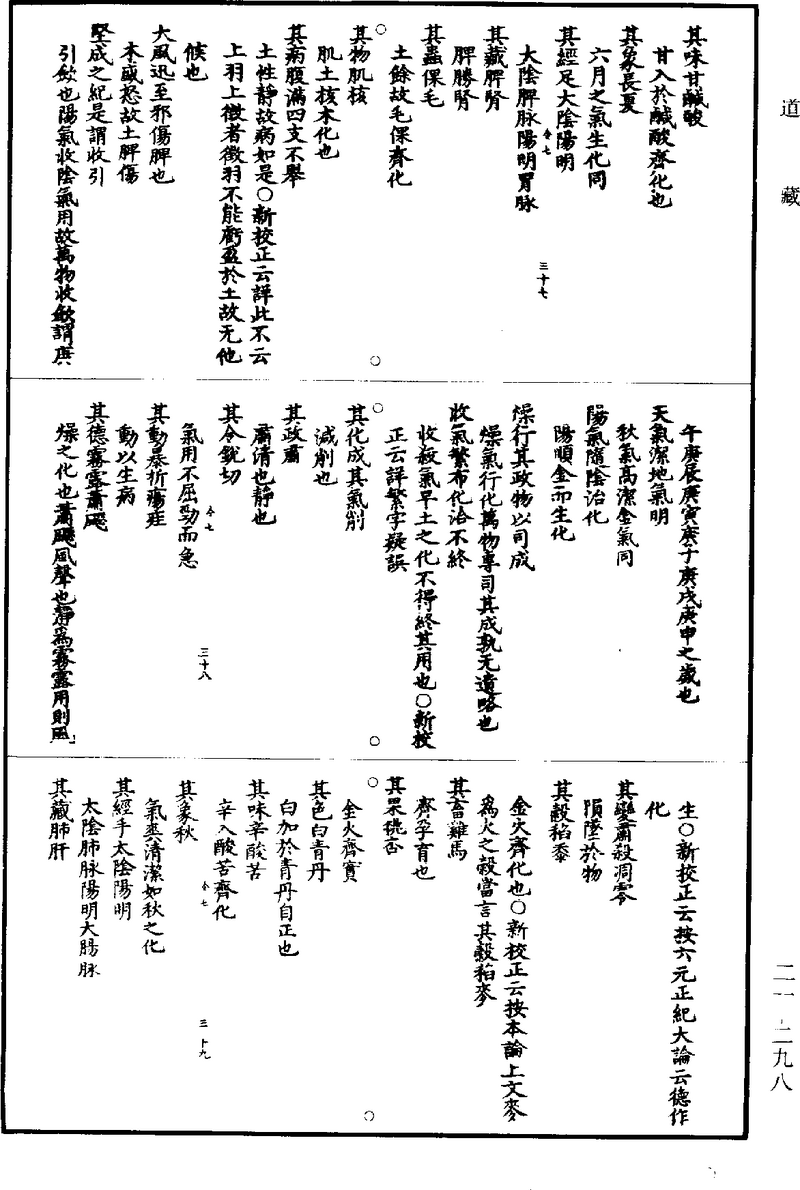 道藏
其味甘鹹酸
甘入於鹹酸齊化也
其象長夏
六月之氣生化同
其經足大陰陽明
大陰脾脉陽明胃脉
其藏脾腎
脾勝腎
其蟲倮毛
土餘故毛倮齊化
其物肌核
肌土核木化也
其病腹滿四支不舉
土性靜故病如是○新校正云詳此不云
上羽上徵者徵羽不能虧盈於土故无他
候也
大風迅至邪傷脾也
木盛怒故土脾傷
堅成之紀是謂收引
引歛也陽氣收陰氣用故萬物收歛謂庚
三十七
午庚辰庚寅庚子庚戌庚申之歲也
天氣潔地氣明
秋氣高潔金氣同
陽氣隨陰治化
陽順金而生化
燥行其政物以司成
燥氣行化萬物專司其成孰无遺略也
收氣繁布化洽不終
收殺氣早土之化不得終其用也○新校
正云詳繁字疑誤
其化成其氣削
減削也
其政肅
肅清也靜也
其令銳切
氣用不屈勁而急
其動暴折瘍疰
動以生病
其德霧露蕭飋
燥之化也蕭飋風聲也靜為霧露用則風
三十八
生○新校正云按六元正紀大論云德作
化
其變肅殺凋零
隕墜於物
其穀稻黍
金火齊化也○新校正云按本論上文麥
為火之穀當言其穀稻麥
其畜雞馬
齊孕育也
其果桃杏
金火齊實
其色白青丹
白加於青丹自正也
其味辛酸苦
辛入酸苦齊化
其象秋
氣爽清潔如秋之化
其經手太陰陽明
太陰肺脉陽明大腸脉
其藏肺肝
三十九
二一-二九八